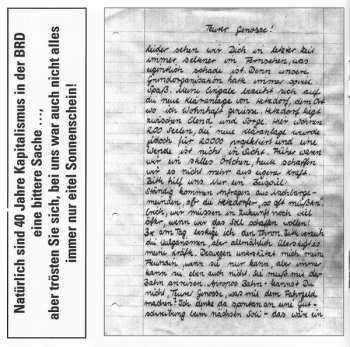 Natürlich sind 40 Jahre Kapitalismus in der BRD
eine bittere Sache ...,
aber trösten Sie sich, bei uns war auch nicht alles
immer nur eitel Sonnenschein!
Teurer Genosse!
Leider sehen wir Dich in letzter Zeit
immer seltener im Fernsehen, was
eigentlich schade ist. Denn unsere
Grundorganisation hatte immer viel
Spaß. Meine Eingabe bezieht sich auf
die neue Kläranlage von Hetzdorf, dem Ort
wo ich Wohnhaft genieße. Hetzdorf liegt
zwischen Elend und Sorge. Hier wohnen
200 Seelen, die neue Kläranlage wurde
jedoch für 20000 projektiert und eine
Wende ist nicht in Sicht. Früher waren
wir ein stilles Örtchen, heute schaffen
wir es nicht mehr aus eigener Kraft.
Bitte hilf uns. Nur ein Beispiel:
Ständig kommen Anfragen aus
ob die Hetzdorfer so oft müßten
wir müssen in Zukunft noch viel
öfter, wenn wir das Soll schaffen wollen!
am Tag besteige ich den Thron. Ich versuch
die Aufgenomen, aber allmählich übersteigt es
meine Kräfte. Deswegen unterstützt mich meine
Freundin, wenn sie nur kann, aber immer
kann sie eben auch nicht. Sie muß mit der
Bahn anreisen. Apropos Bahn - kannst Du
nicht, Teurer Genosse, was mit dem Fahrgeld
machen? Ich denke da spontan an eine Gut-
schreibung beim nächsten Soli - das wär ein